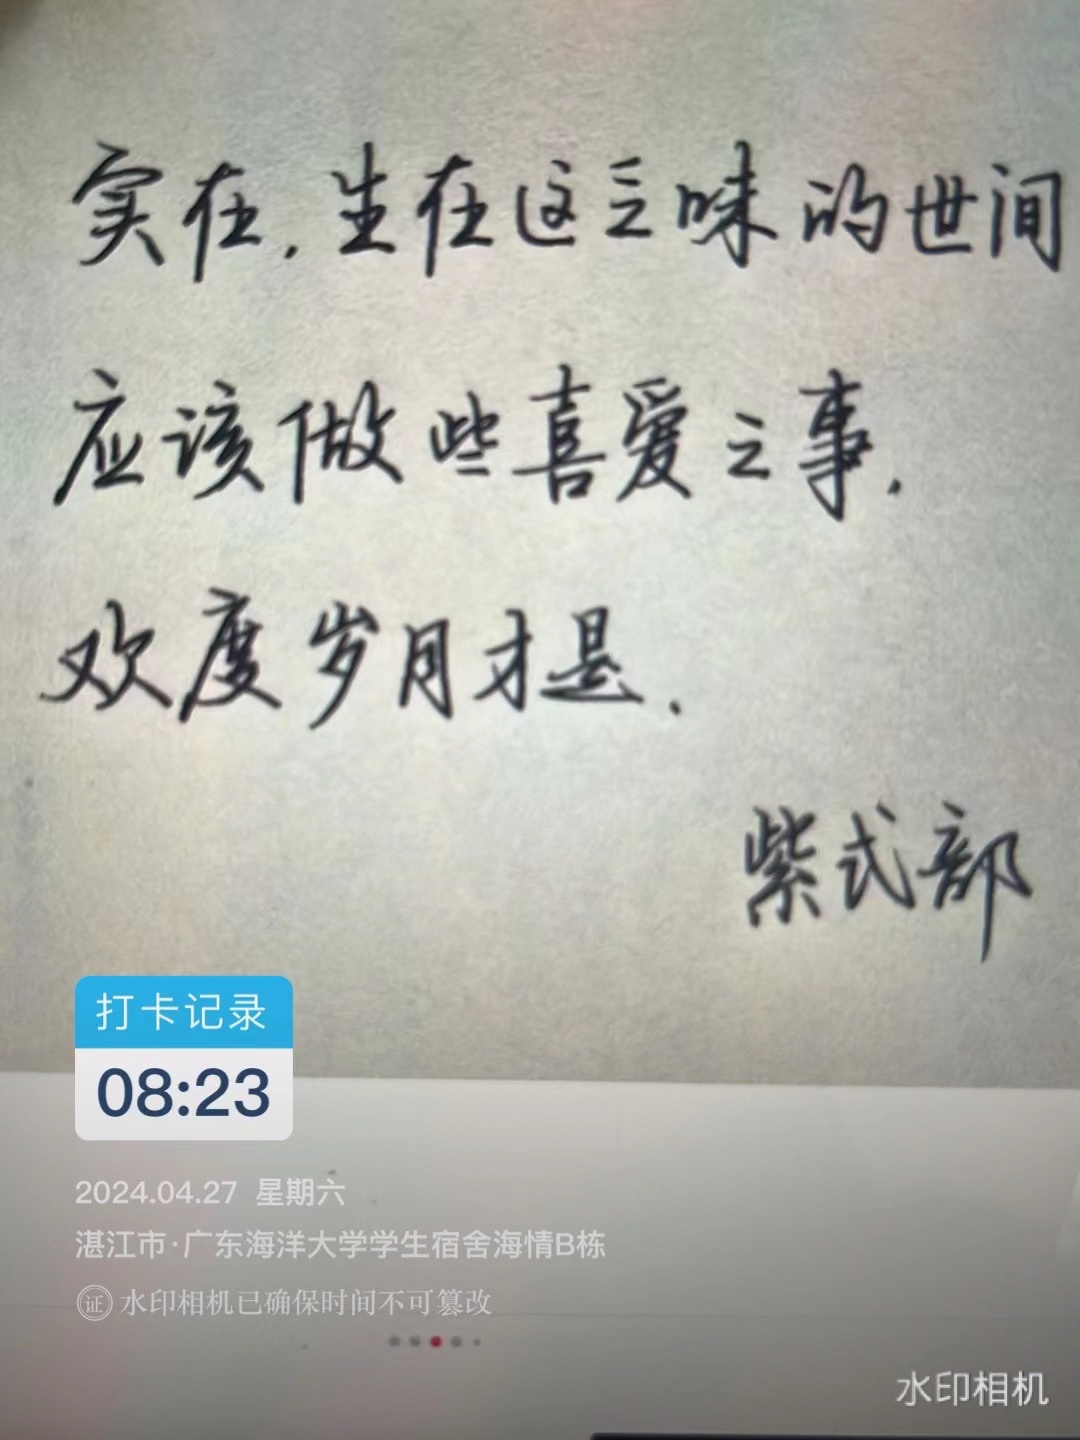 实在,生在这乏味的世间
应该做些喜爱之事.
欢度岁月才是.
紫式部
打卡记录
08:23
2024.04.27 星期六
湛江市·广东海洋大学学生宿舍海情B栋
证 水印相机已确保时间不可篡改
水印相机